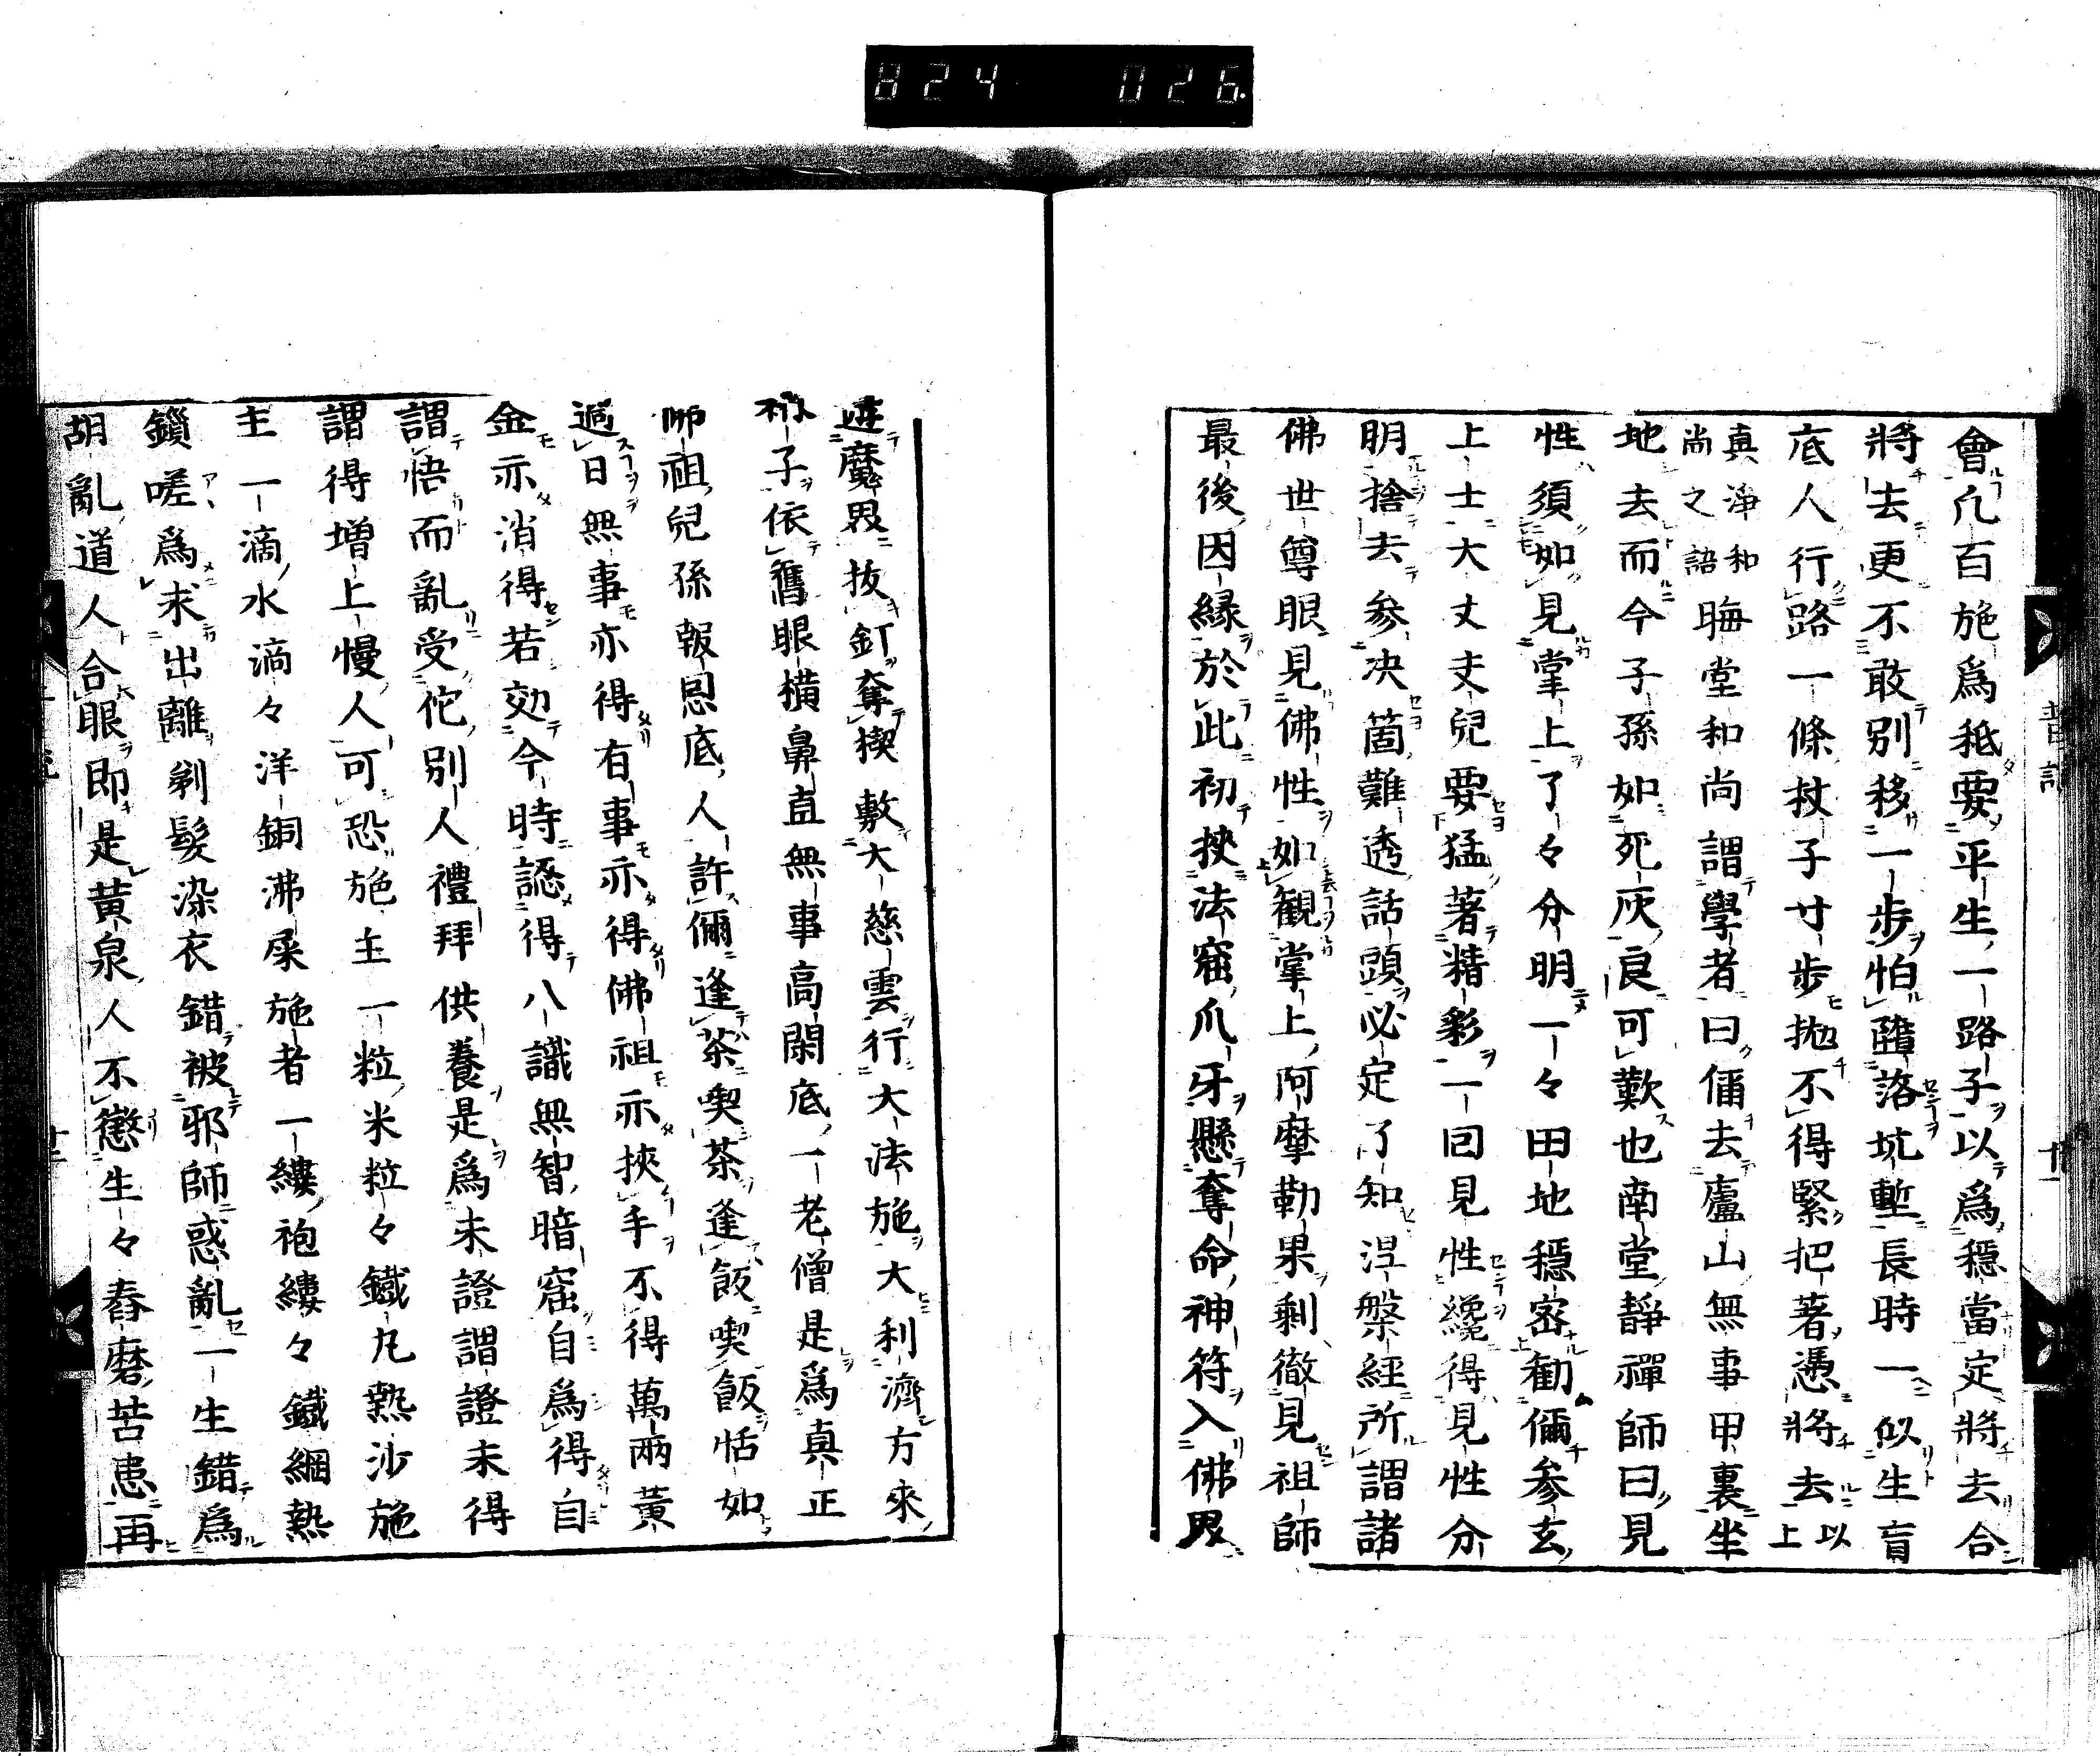 824 026
會凢百施爲秪要平生一路子以爲穩當定將去合
將去更不敢別移一歩怕墮落坑塹長時一似生盲
底人行路一條杖子寸歩抛不得緊把著憑將去 以上
真淨和尚之語 晦堂和尚謂學者曰儞去廬山無事甲裏坐
地去而今子孫如死灰良可歎也南堂靜禪師曰見
性須如見掌上了々分明一々田地穩密勸儞参玄
上士大丈夫兒要猛著精彩一回見性纔得見性分
明捨去去参决箇難透話頭必定了知涅槃經所謂諸
佛世尊眼見佛性如観掌上阿摩勒果剩徹見祖師
最後因縁於此初挾法窟爪牙懸奪命神符入佛界
遊魔界抜釘奪楔敷大慈雲行大法施大利濟方來
衲子依舊眼横鼻直無事高閑底一老僧是爲真正
佛祖兒孫報恩底人許儞逢茶喫茶逢飯喫飯恬如
過日無事亦得有事亦得佛祖亦挾手不得萬兩黄
金亦消得若効今時認得八識無智暗窟自爲得自
謂悟而亂受佗別人禮拜供養是爲未證謂證未得
謂得増上慢人可恐施主一粒米粒々鐵丸熱沙施
主一滴水滴々洋銅沸屎施者一縷袍縷々鐵綱熱
鎖嗟爲求出離剃髮染衣錯被邪師惑亂一生錯爲
胡亂道人合眼即是黄泉人不懲生々舂磨苦患再